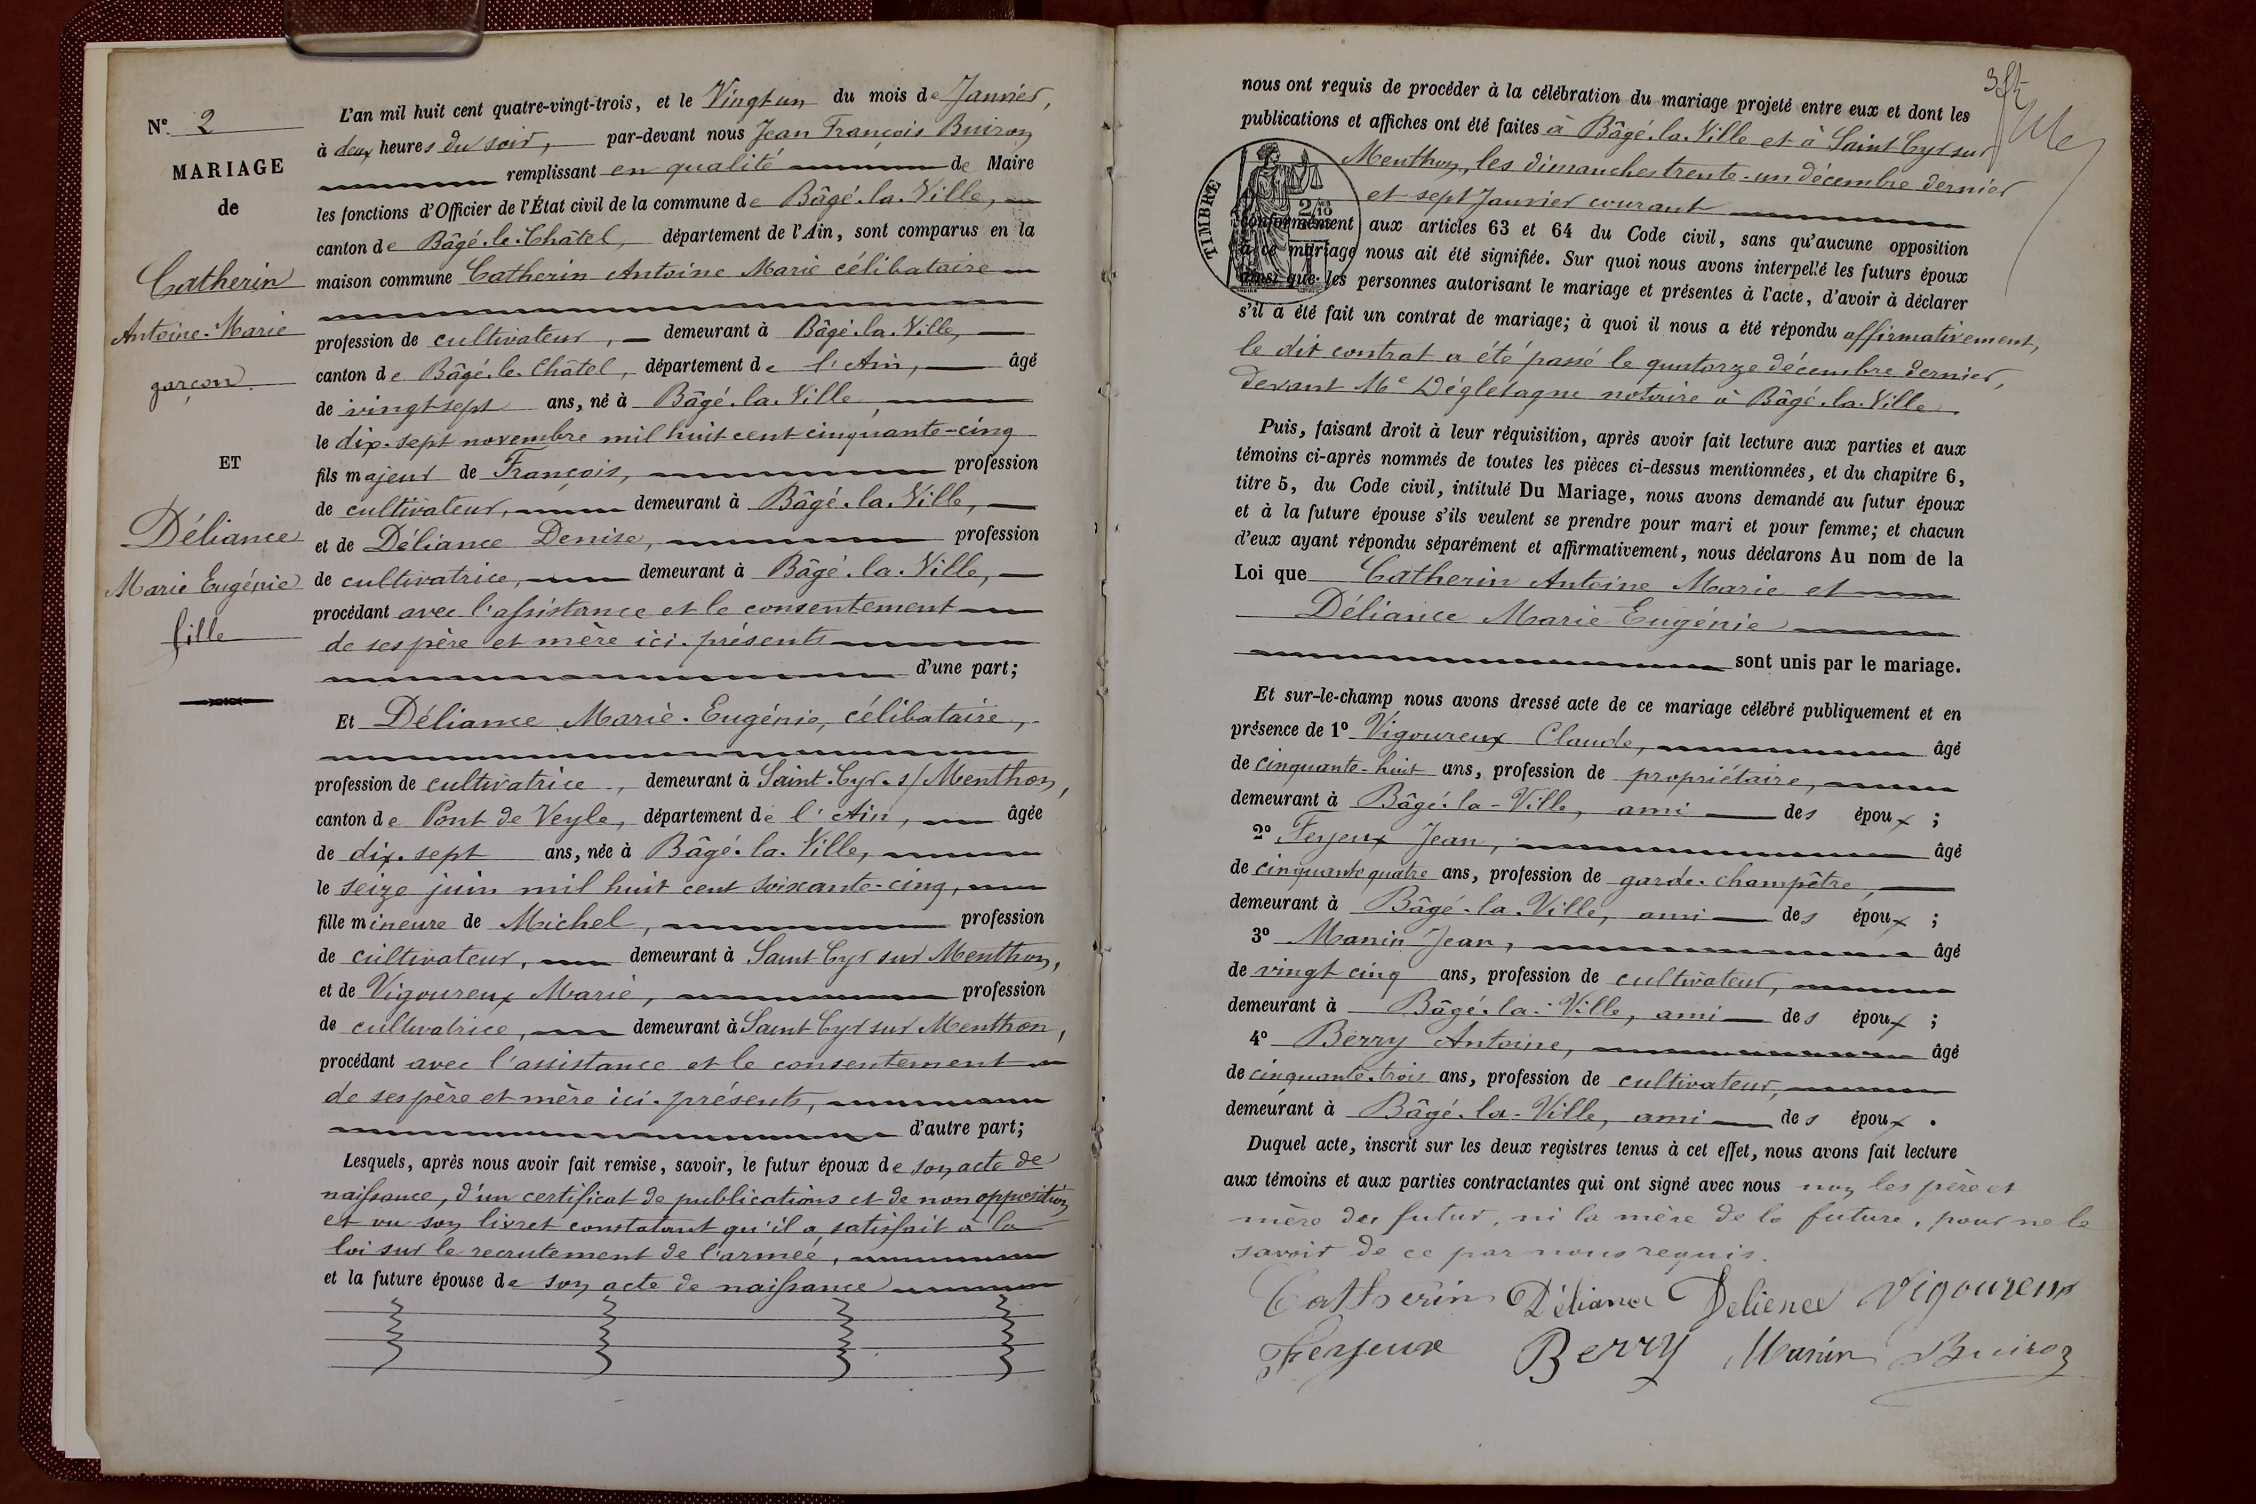 N° 2
MARIAGE
de
Catherin
Antoine-Marie
garçon
ET
Déliance
Marie Eugénie
fille
L'an mil huit cent quatre-vingt-trois, et le Vingt un du mois de Janvier,
à deux heures du soir, par-devant nous Jean François Buiron
remplissant en qualité de Maire
les fonctions d'Officier de l'État civil de la commune de Bâgé-la-Ville,
canton de Bâgé-le-Châtel, département de l'Ain, sont comparus en la
maison commune Catherin Antoine Marie célibataire
profession de cultivateur, demeurant à Bâgé-la-Ville,
canton de Bâgé-le-Châtel, département de l'Ain, âgé
de vingt sept ans, né à Bâgé-la-Ville,
le dix-sept novembre mil huit cent cinquante-cinq
fils majeur de François, profession
de cultivateur, demeurant à Bâgé-la-Ville,
et de Déliance Denise, profession
de cultivatrice, demeurant à Bâgé-la-Ville,
procédant avec l'assistance et le consentement
de ses père et mère ici-présents
d'une part;
Et Déliance Marie-Eugénie, célibataire,
profession de cultivatrice, demeurant à Saint-Cyr-s/Menthon,
canton de Pont de Veyle, département de l'Ain, âgée
de dix-sept ans, née à Bâgé-la-Ville,
le seize juin mil huit cent soixante-cinq,
fille mineure de Michel, profession
de cultivateur, demeurant à Saint Cyr sur Menthon,
et de Vigoureux Marie, profession
de cultivatrice, demeurant à Saint Cyr sur Menthon,
procédant avec l'assistance et le consentement
de ses père et mère ici-présents,
d'autre part;
Lesquels, après nous avoir fait remise, savoir, le futur époux de son acte de
naissance, d'un certificat de publications et de non opposition
et vu son livret constatant qu'il a satisfait à la
loi sur le recrutement de l'armée,
et la future épouse de son acte de naissance
nous ont requis de procéder à la célébration du mariage projeté entre eux et dont les
publications et affiches ont été faites à Bâgé-la-Ville et à Saint Cyr sur
Menthon, les dimanches trente-un décembre dernier
et sept Janvier courant
TIMBRE
conformément aux articles 63 et 64 du Code civil, sans qu'aucune opposition
à ce mariage nous ait été signifiée. Sur quoi nous avons interpellé les futurs époux
ainsi que les personnes autorisant le mariage et présentes à l'acte, d'avoir à déclarer
s'il a été fait un contrat de mariage; à quoi il nous a été répondu affirmativement,
le dit contrat a été passé le quatorze décembre dernier,
devant Me Dégletagne notaire à Bâgé-la-Ville.
Puis, faisant droit à leur réquisition, après avoir fait lecture aux parties et aux
témoins ci-après nommés de toutes les pièces ci-dessus mentionnées, et du chapitre 6,
titre 5, du Code civil, intitulé Du Mariage, nous avons demandé au futur époux
et à la future épouse s'ils veulent se prendre pour mari et pour femme; et chacun
d'eux ayant répondu séparément et affirmativement, nous déclarons Au nom de la
Loi que Catherin Antoine Marie et
Déliance Marie Eugénie
sont unis par le mariage.
Et sur-le-champ nous avons dressé acte de ce mariage célébré publiquement et en
présence de 1° Vigoureux Claude, âgé
de cinquante-huit ans, profession de propriétaire,
demeurant à Bâgé-la-Ville, ami des époux;
2° Ferjeux Jean, âgé
de cinquante quatre ans, profession de garde-champêtre,
demeurant à Bâgé-la-Ville, ami des époux;
3° Manin Jean, âgé
de vingt cinq ans, profession de cultivateur,
demeurant à Bâgé-la-Ville, ami des époux;
4° Berry Antoine, âgé
de cinquante-trois ans, profession de cultivateur,
demeurant à Bâgé-la-Ville, ami des époux.
Duquel acte, inscrit sur les deux registres tenus à cet effet, nous avons fait lecture
aux témoins et aux parties contractantes qui ont signé avec nous non les père et
mère du futur, ni la mère de la future, pour ne le
savoir de ce par nous requis.
Catherin Déliance Delience Vigoureux
Ferjeux Berry Manin Buiron